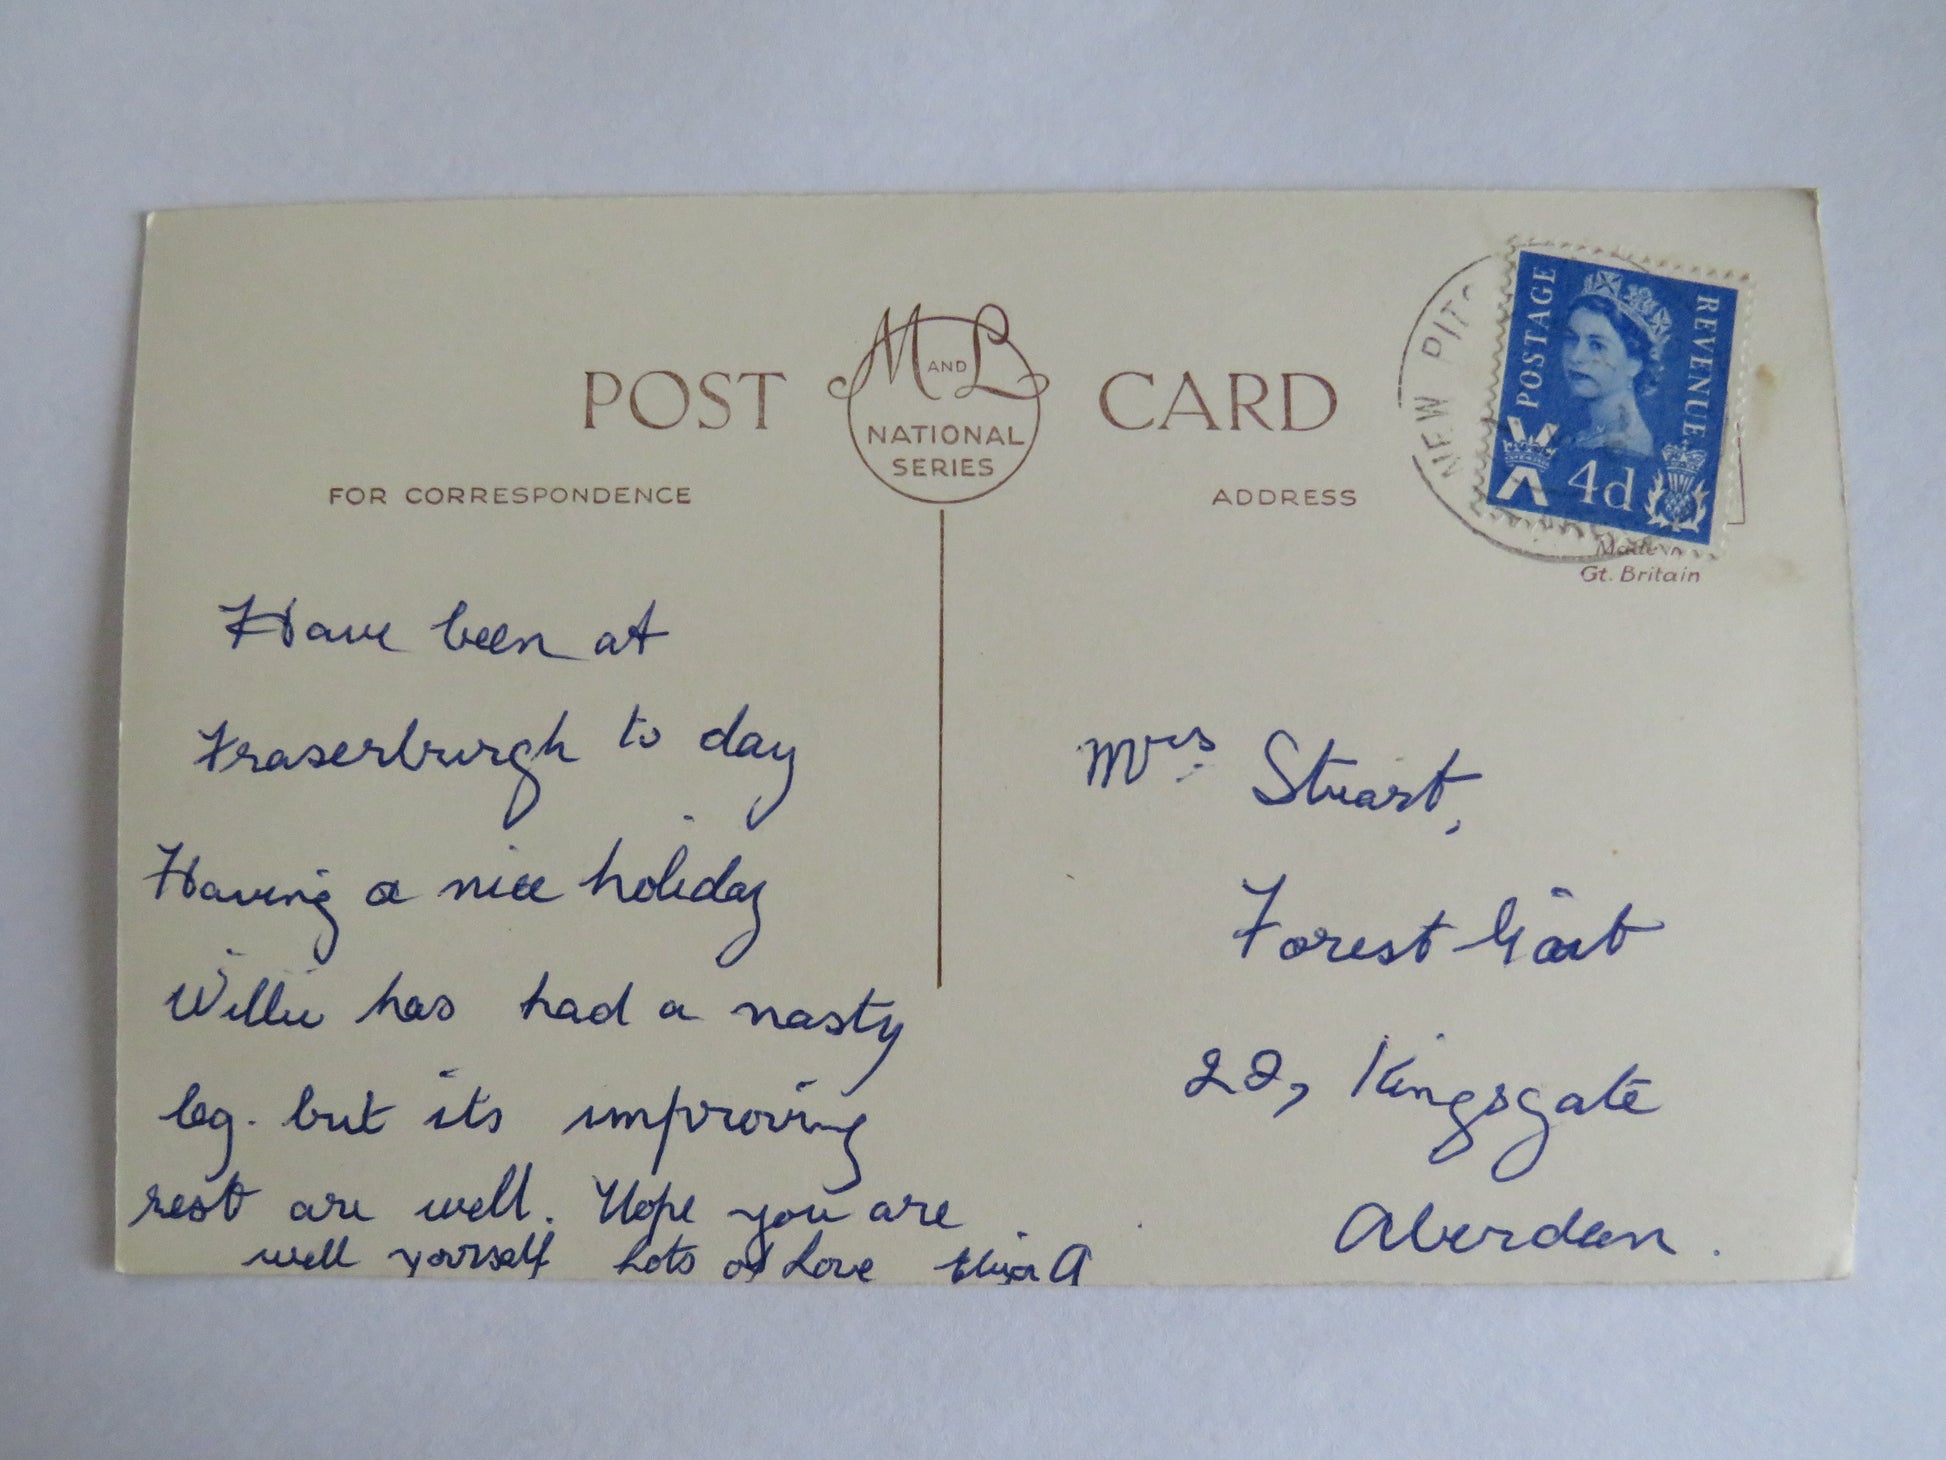 POST CARD
M AND L
NATIONAL
SERIES
FOR CORRESPONDENCE
ADDRESS
NEW PIT
POSTAGE
REVENUE
4d
Made in
Gt. Britain
Have been at
Fraserburgh to day
Having a nice holiday
Willie has had a nasty
leg. but its improving
rest are well. Hope you are
well yourself Lots of Love Eliza A
Mrs Stuart,
Forest Gait
22, Kingsgate
Aberdeen.